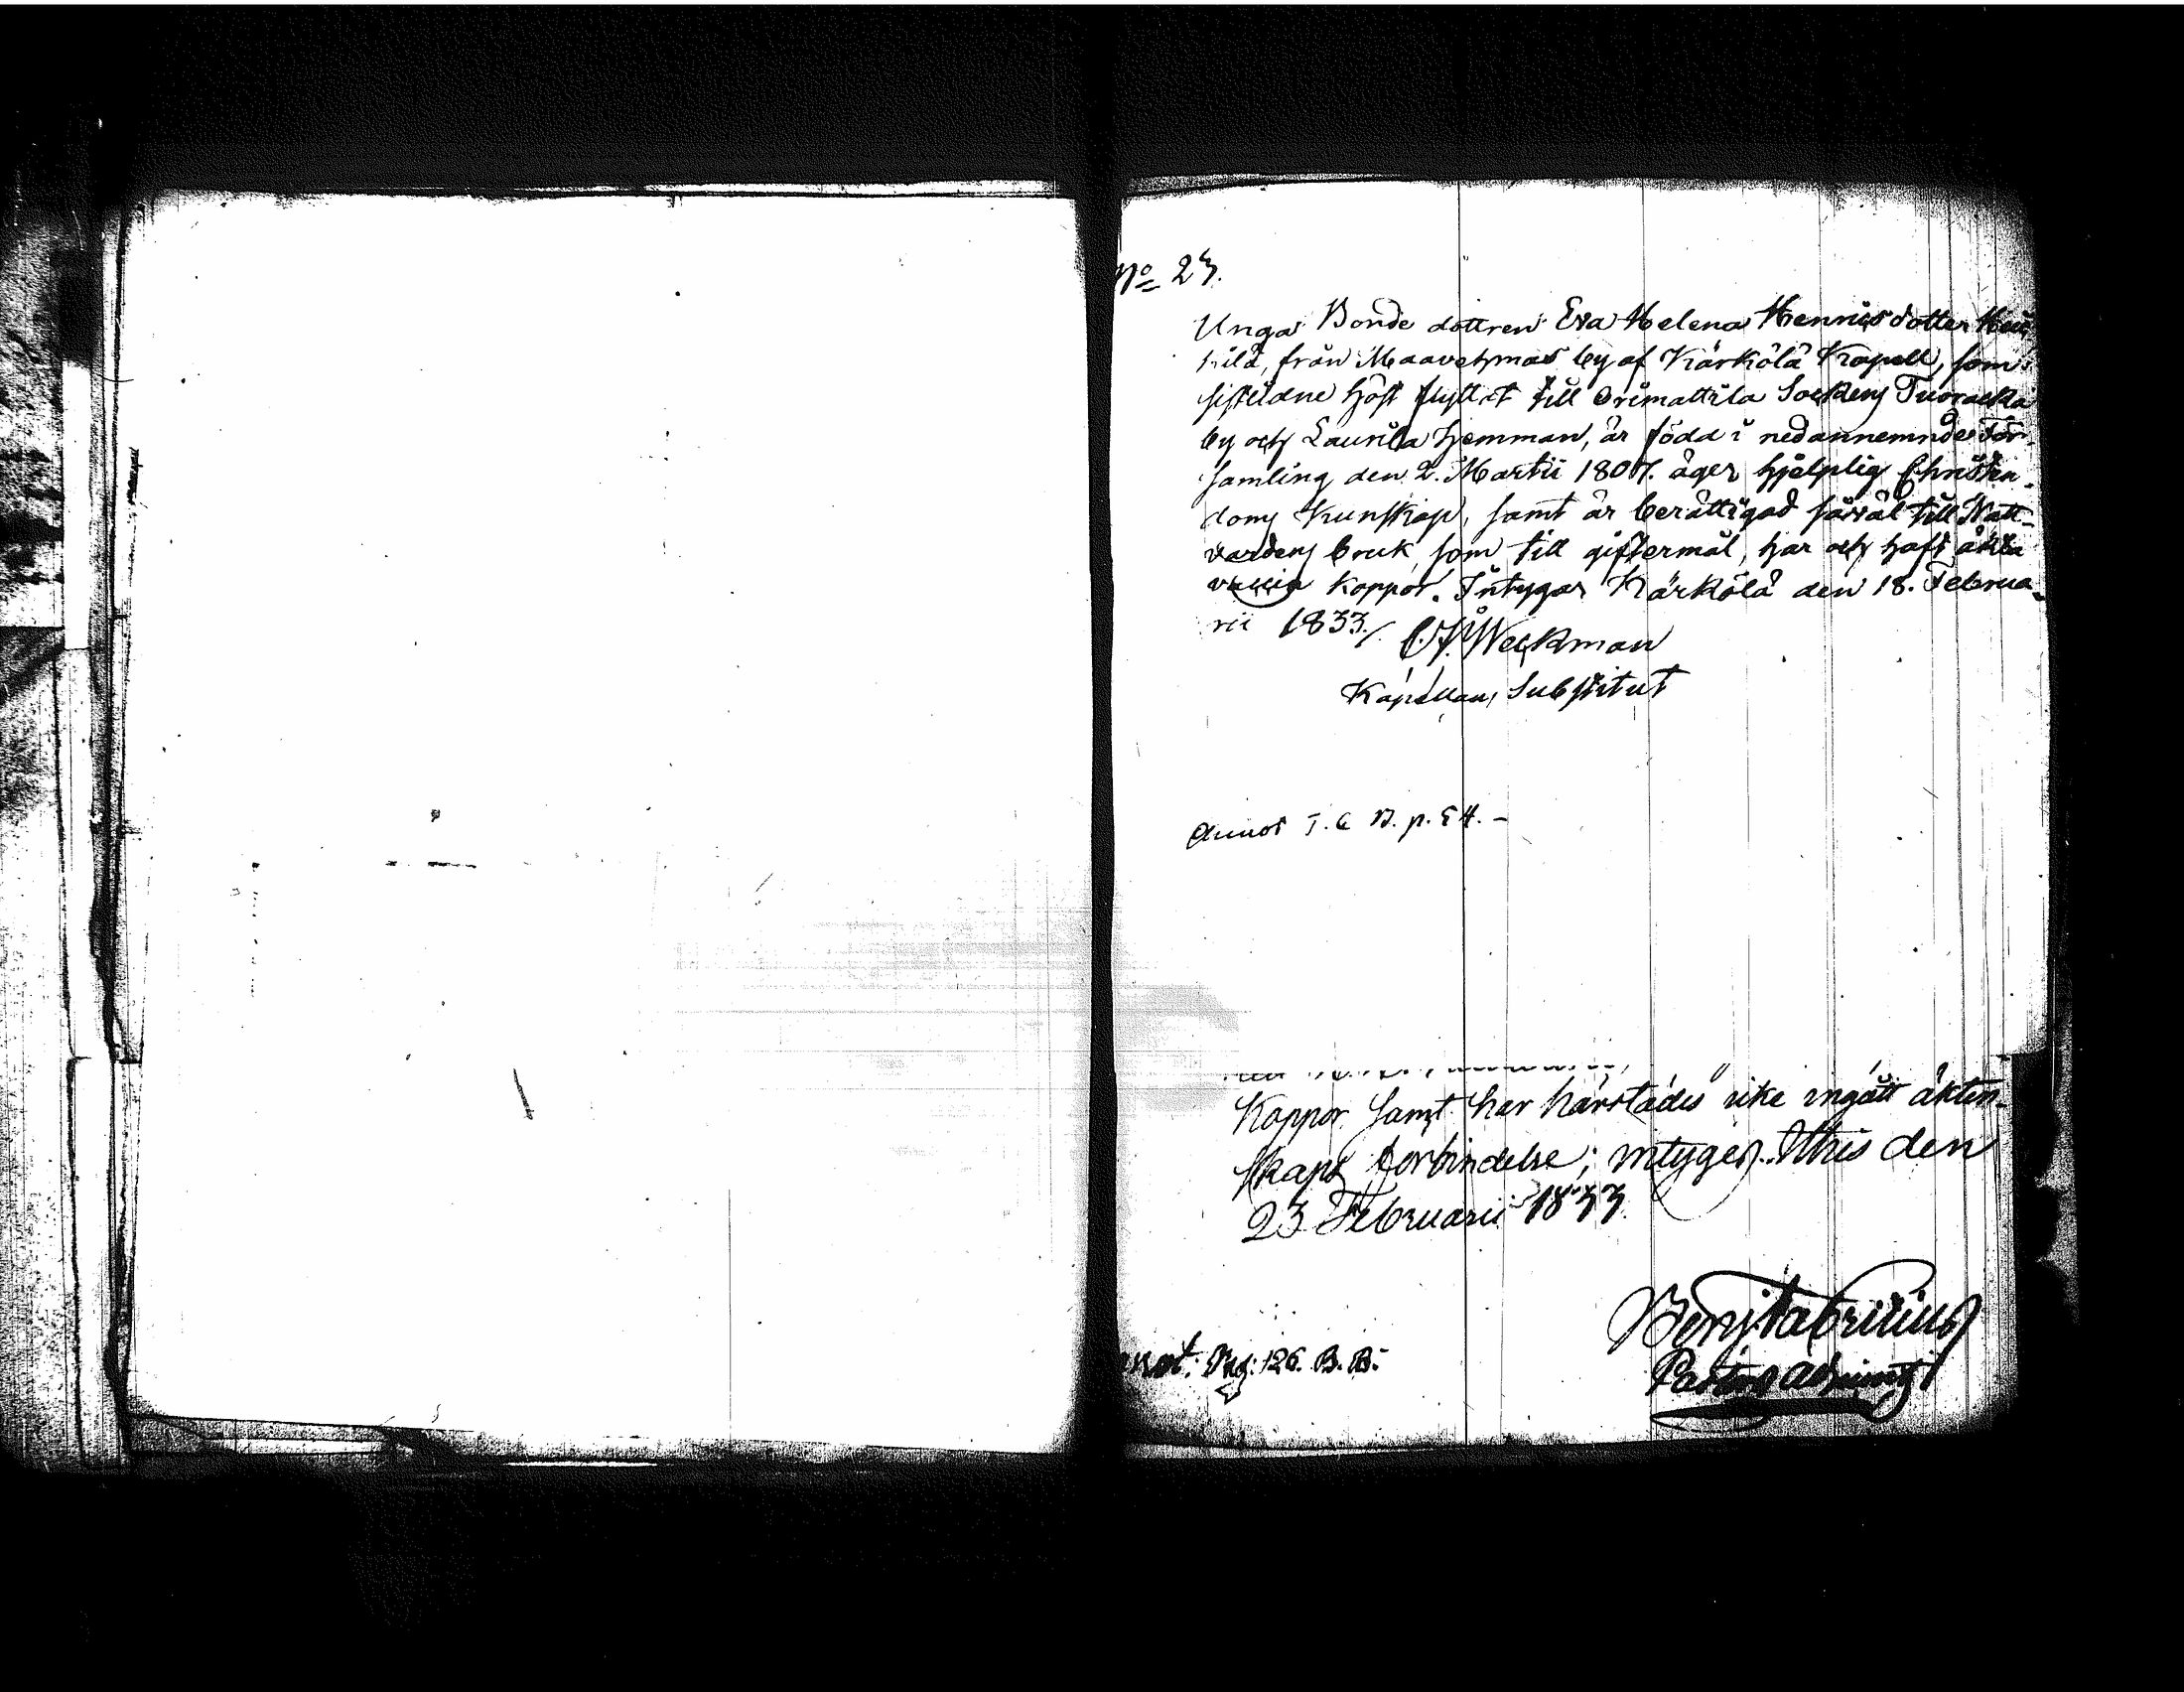 No 23.
Unga Bonde dottren Eva Helena Henricsdotter Heic,
kilä, från Maavehmas by af Kärkölä Kapell, som
sistlidne höst flyttat till Orimattila Sockens Tuorakka
by och Laurila hemman, är född i nedannemnde För-
samling den 2. Martii 1807. äger hjelplig Christen-
doms Kunskap, samt är berättigad såväl till Natt-
vardens bruk, som till giftermål, har och haft äkta
vaccin koppor. Intygar Kärkölä den 18. Februa-
rii 1833./. Weckman
Kapellans Substitut
Annot T. C. B. p. 54. -
Koppor samt har härstädes icke ingått äkten-
skaps forbindelse; intygas. Ithis den
23 Februarii 1833
Benj Fabritius
Pastors adjunct
nnot: Pag: 126. B. B.